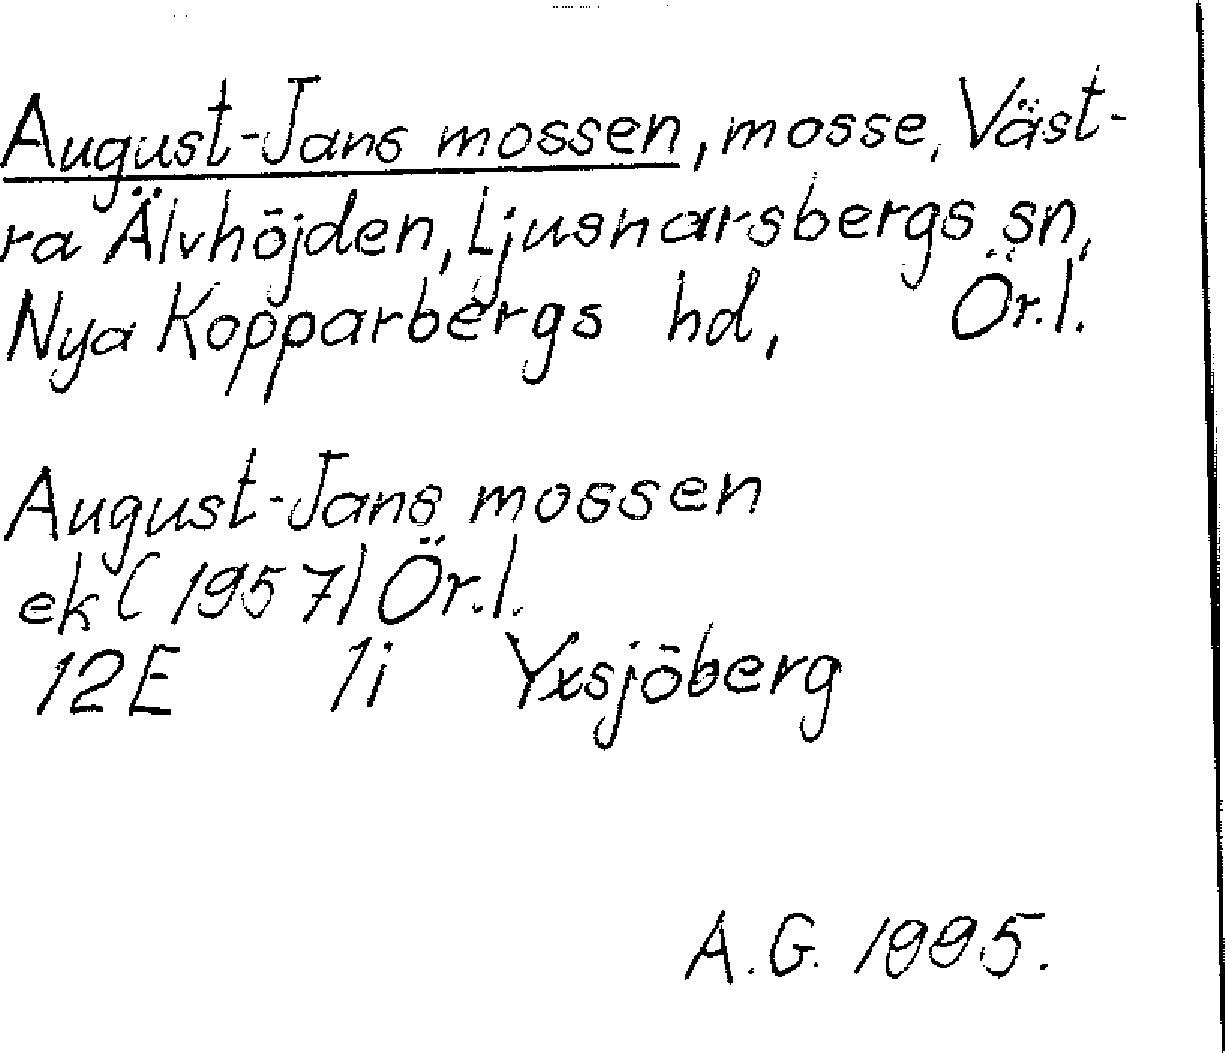 August-Jans mossen, mosse, Väst-
ra Älvhöjden, Ljusnarsbergs sn,
Nya Kopparbergs hd, Ör.l.
August-Jans mossen
ek (1957) Ör.l.
12E 1i Yxsjöberg
A.G. 1995.